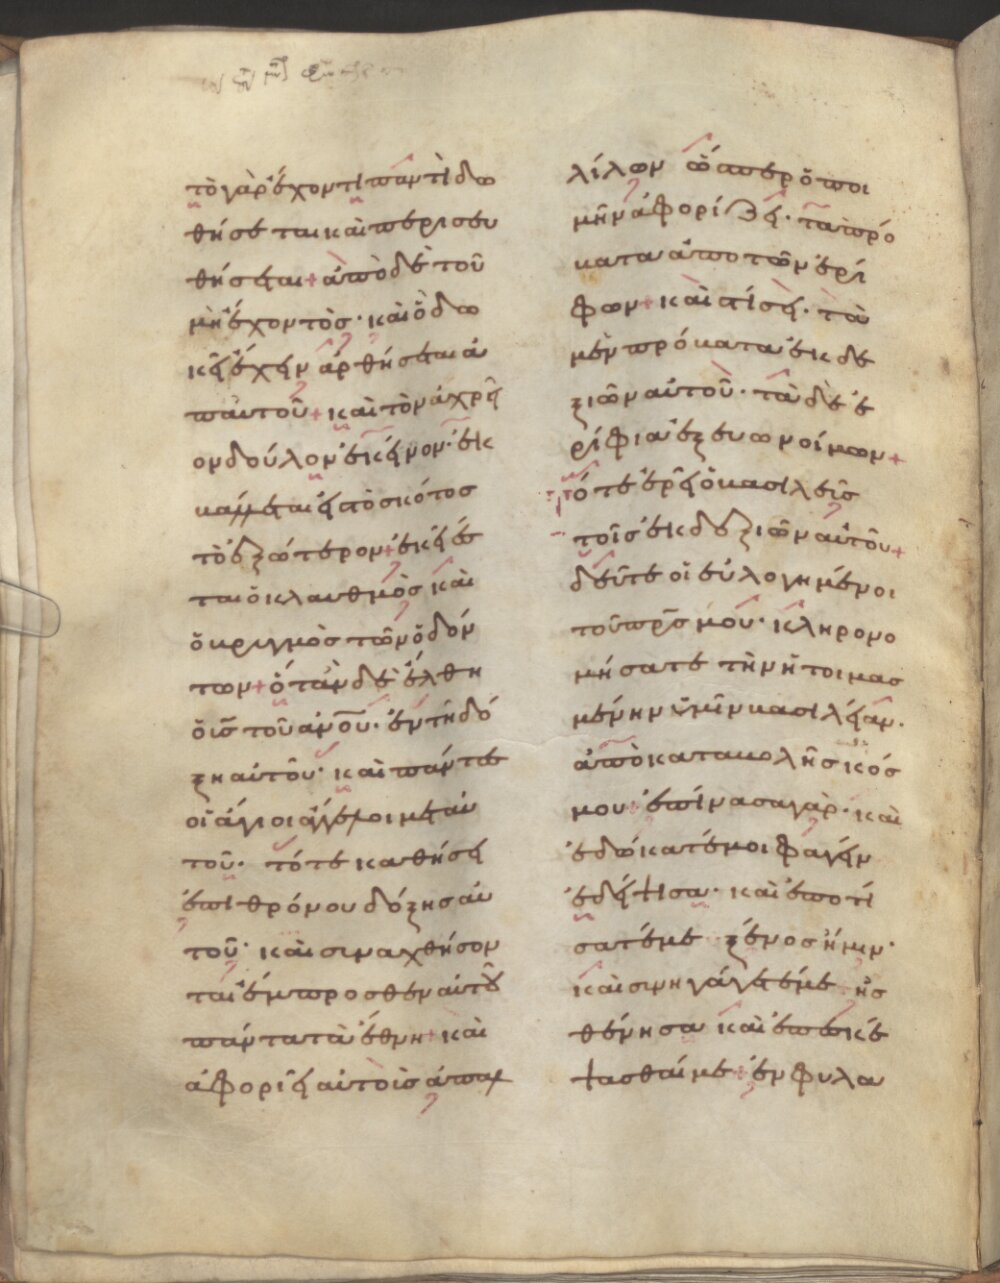 τὸ γὰρ ἔχοντι παντὶ δω
θήσεται καὶ περισευ
θήσεται + ἀπὸ δὲ τοῦ
μὴ ἔχοντὸς · καὶ ὃ δω
κεῖ ἔχειν ἀρθήσεται ἀ
π αυτοῦ + καὶ τὸν ἀχρεῖ
ον δούλον ἐκείνον · ἐκ
βάλλεται εἰς τὸ σκότος
τὸ ἐξώτερον + ἐκεῖ ἔσ
ται ὁ κλαυθμὸς καὶ
ὁ βριγμὸς τῶν ὀδόν
των + ὅταν δὲ ἔλθη
ὁ ις τοῦ ανου · ἐν τῆ δό
ξη αυτοῦ · καὶ πάντες
οἱ άγιοι άγγελοι μετ αυ
τοῦ · τότε καθήσει
ἐπὶ θρόνου δόξης αύ
τοῦ · καὶ σιναχθήσον
ται έμπροσθεν αυτοῦ
πάντα τὰ έθνη + καὶ
ἀφοριεῖ αὐτοὶς ἀπ αλ
λίλων ὥσπερ ὁ ποι
μὴν ἀφορίζει · τα πρό
βατα ἀπο τῶν ἐρί
φων + καὶ στίσει · τὰ
μὲν πρόβατα ἐκ δε
ξιῶν αὐτοῦ · τὰ δὲ ἐ
ρίφια ἐξ ευωνοίμων +
τότε ἐρεῖ ὁ βασιλεὶς
τοῖς ἐκ δεξιῶν αὐτοῦ +
δεῦτε οἱ εὐλογημένοι
τοῦ πρς μου · κληρονο
μήσατε τὴν ἡτοιμασ
μένην ὑμῖν βασιλείαν ·
ἀπὸ καταβολῆς κόσ
μου + ἐπίνασα γὰρ · καὶ
ἐδώκατέ μοι φαγεῖν
ἐδείψισα · καὶ ἐποτί
σατέ με ξένος ήμιν ·
καὶ σινηγάγετέ με ησ
θένησα καὶ ἐπεσκέ
ψασθαί με + ἐν φυλα